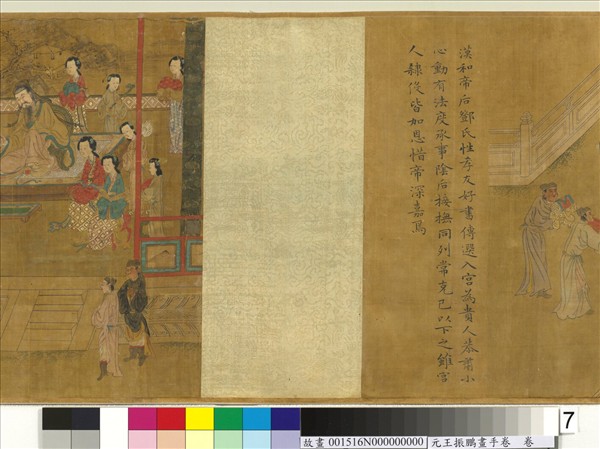 漢和帝后鄧氏性孝友好書傳選入宮為貴人恭肅小
心動有法度承事陰后接撫同列常克己以下之雖宮
人隸役皆加恩惜帝深嘉焉
7
故畫 001516N000000000 元王振鵬畫手卷 卷